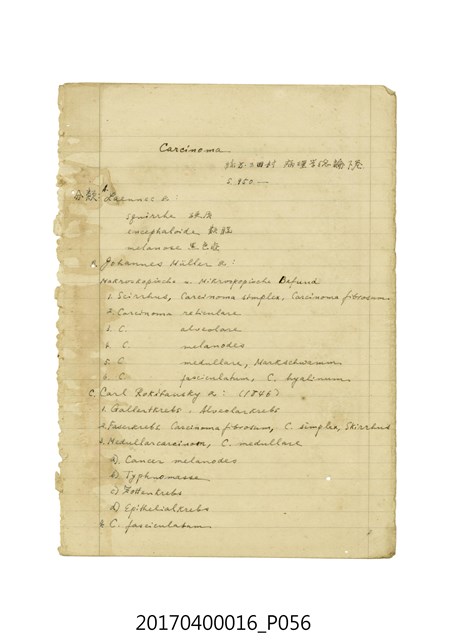 Carcinoma
病理学总論下卷
S. 850
分類
A. Laennec の:
squirrhe 硬癌
encephaloide 軟癌
melanose 黒色癌
B. Johannes Müller の:
Makroskopische u. Mikroskopische Befund
1. Scirrhus, Carcinoma simplex, Carcinoma fibrosum
2. Carcinoma reticulare
3. C. alveolare
4. C. melanodes
5. C. medullare, Markschwamm
6. C. fasciculatum, C. hyalinum
C. Carl Rokitansky の: (1846)
1. Gallertkrebs. Alveolarkrebs
2. Faserkrebs Carcinoma fibrosum, C. simplex, Skirrhus
3. Medullarcarcinom, C. medullare
a) Cancer melanodes
b) Typhusmasse
c) Zottenkrebs
d) Epithelialkrebs
4. C. fasciculatum
20170400016_P056